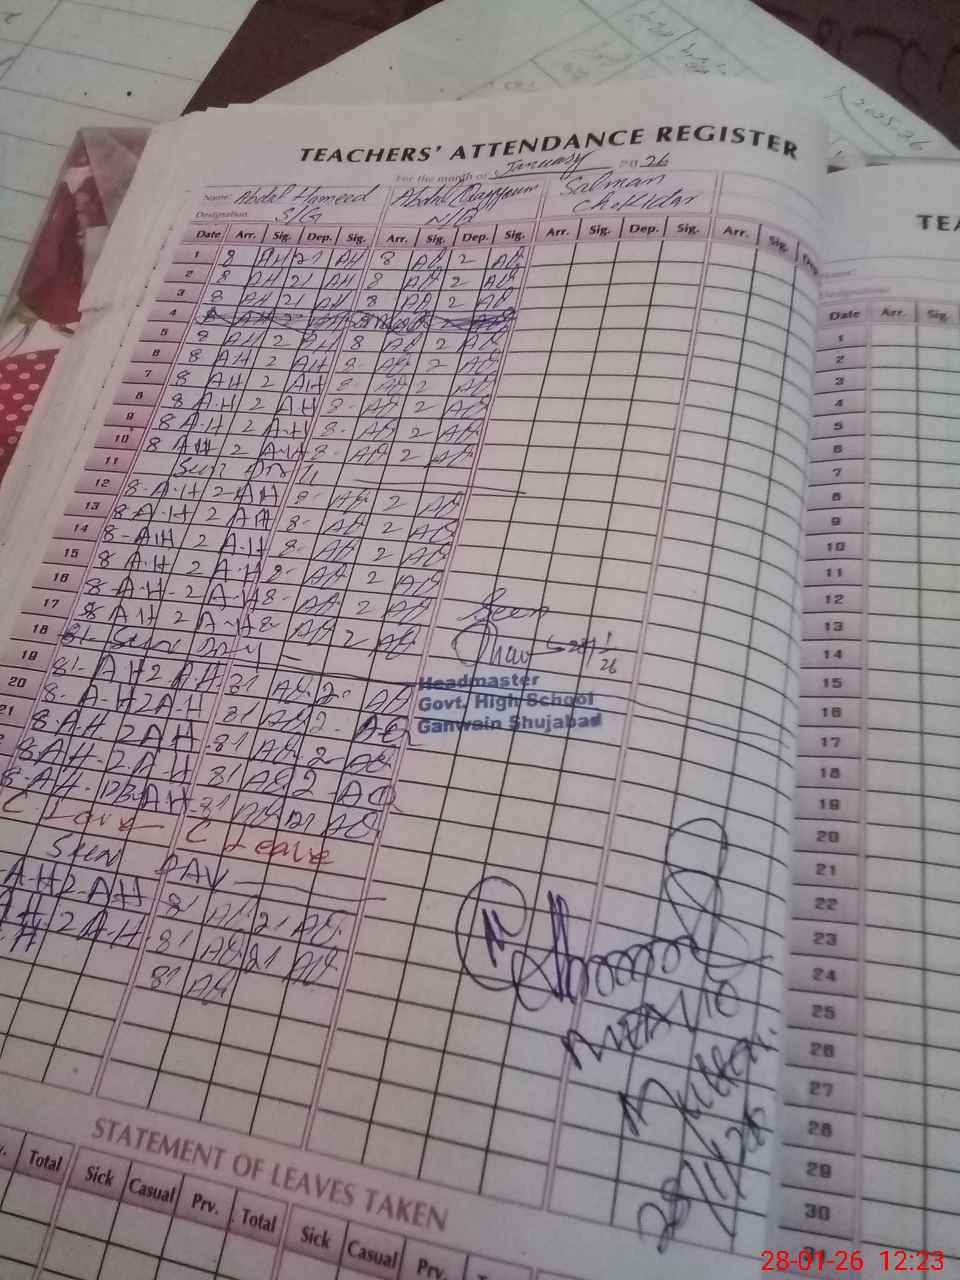 TEACHERS' ATTENDANCE REGISTER
For the month of January 2026
Name: Abdul Hameed Abdul Qayyum Salman
Designation S/G N/Q Chokidar
Date Arr. Sig. Dep. Sig. Arr. Sig. Dep. Sig. Arr. Sig. Dep. Sig. Arr. Sig. Dep
1 8 AH 21 AH 8 AQ 2 AQ
2 8 AH 21 AH 8 AQ 2 AQ
3 8 AH 21 AH 8 AQ 2 AQ
4
5 8 AH 2 AH 8 AQ 2 AQ
6 8 AH 2 AH 8- AQ 2 AQ
7 8 AH 2 AH 8- AQ 2 AQ
8 8 A-H 2 AH 8- AQ 2 AQ
9 8 A-H 2 A-H 8- AQ 2 AQ
10 8 AH 2 A-H 8- AQ 2 AQ
11 Sun Day
12 8- A-H 2 AH 8- AQ 2 AQ
13 8 A-H 2 AH 8- AQ 2 AQ
14 8- AH 2 A-H 8- AQ 2 AQ
15 8 A-H 2 A-H 8- AQ 2 AQ
16 8 A-H- 2 A-H 8- AQ 2 AQ
17 8 A-H 2 A-H 8- AQ 2 AQ
18 Sun Day
19 81- AH 2 A-H 81 AQ 2- AQ
20 8- A-H 2 A-H 81 AQ 2- AQ
21 8-A-H- 2 AH 81 AQ 2- AQ
8 AH- 2-A-H 81 AQ 2- AQ
8-AH- A-H 81 AQ AQ
C Leave C Leave
Sun DAY
A-H 2-AH 81 AQ 21 AQ
AH 2 A-H- 81 AQ 21 AQ
A-H 81 AQ
Seen
28/1/26
Headmaster
Govt. High School
Ganwain Shujabad
M
Multan
28/1/26
STATEMENT OF LEAVES TAKEN
Total Sick Casual Prv. Total Sick Casual Prv.
2025-26
TEA
Name:
Designation:
Date Arr. Sig.
1
2
3
4
5
6
7
8
9
10
11
12
13
14
15
16
17
18
19
20
21
22
23
24
25
26
27
28
29
30
28-01-26 12:23